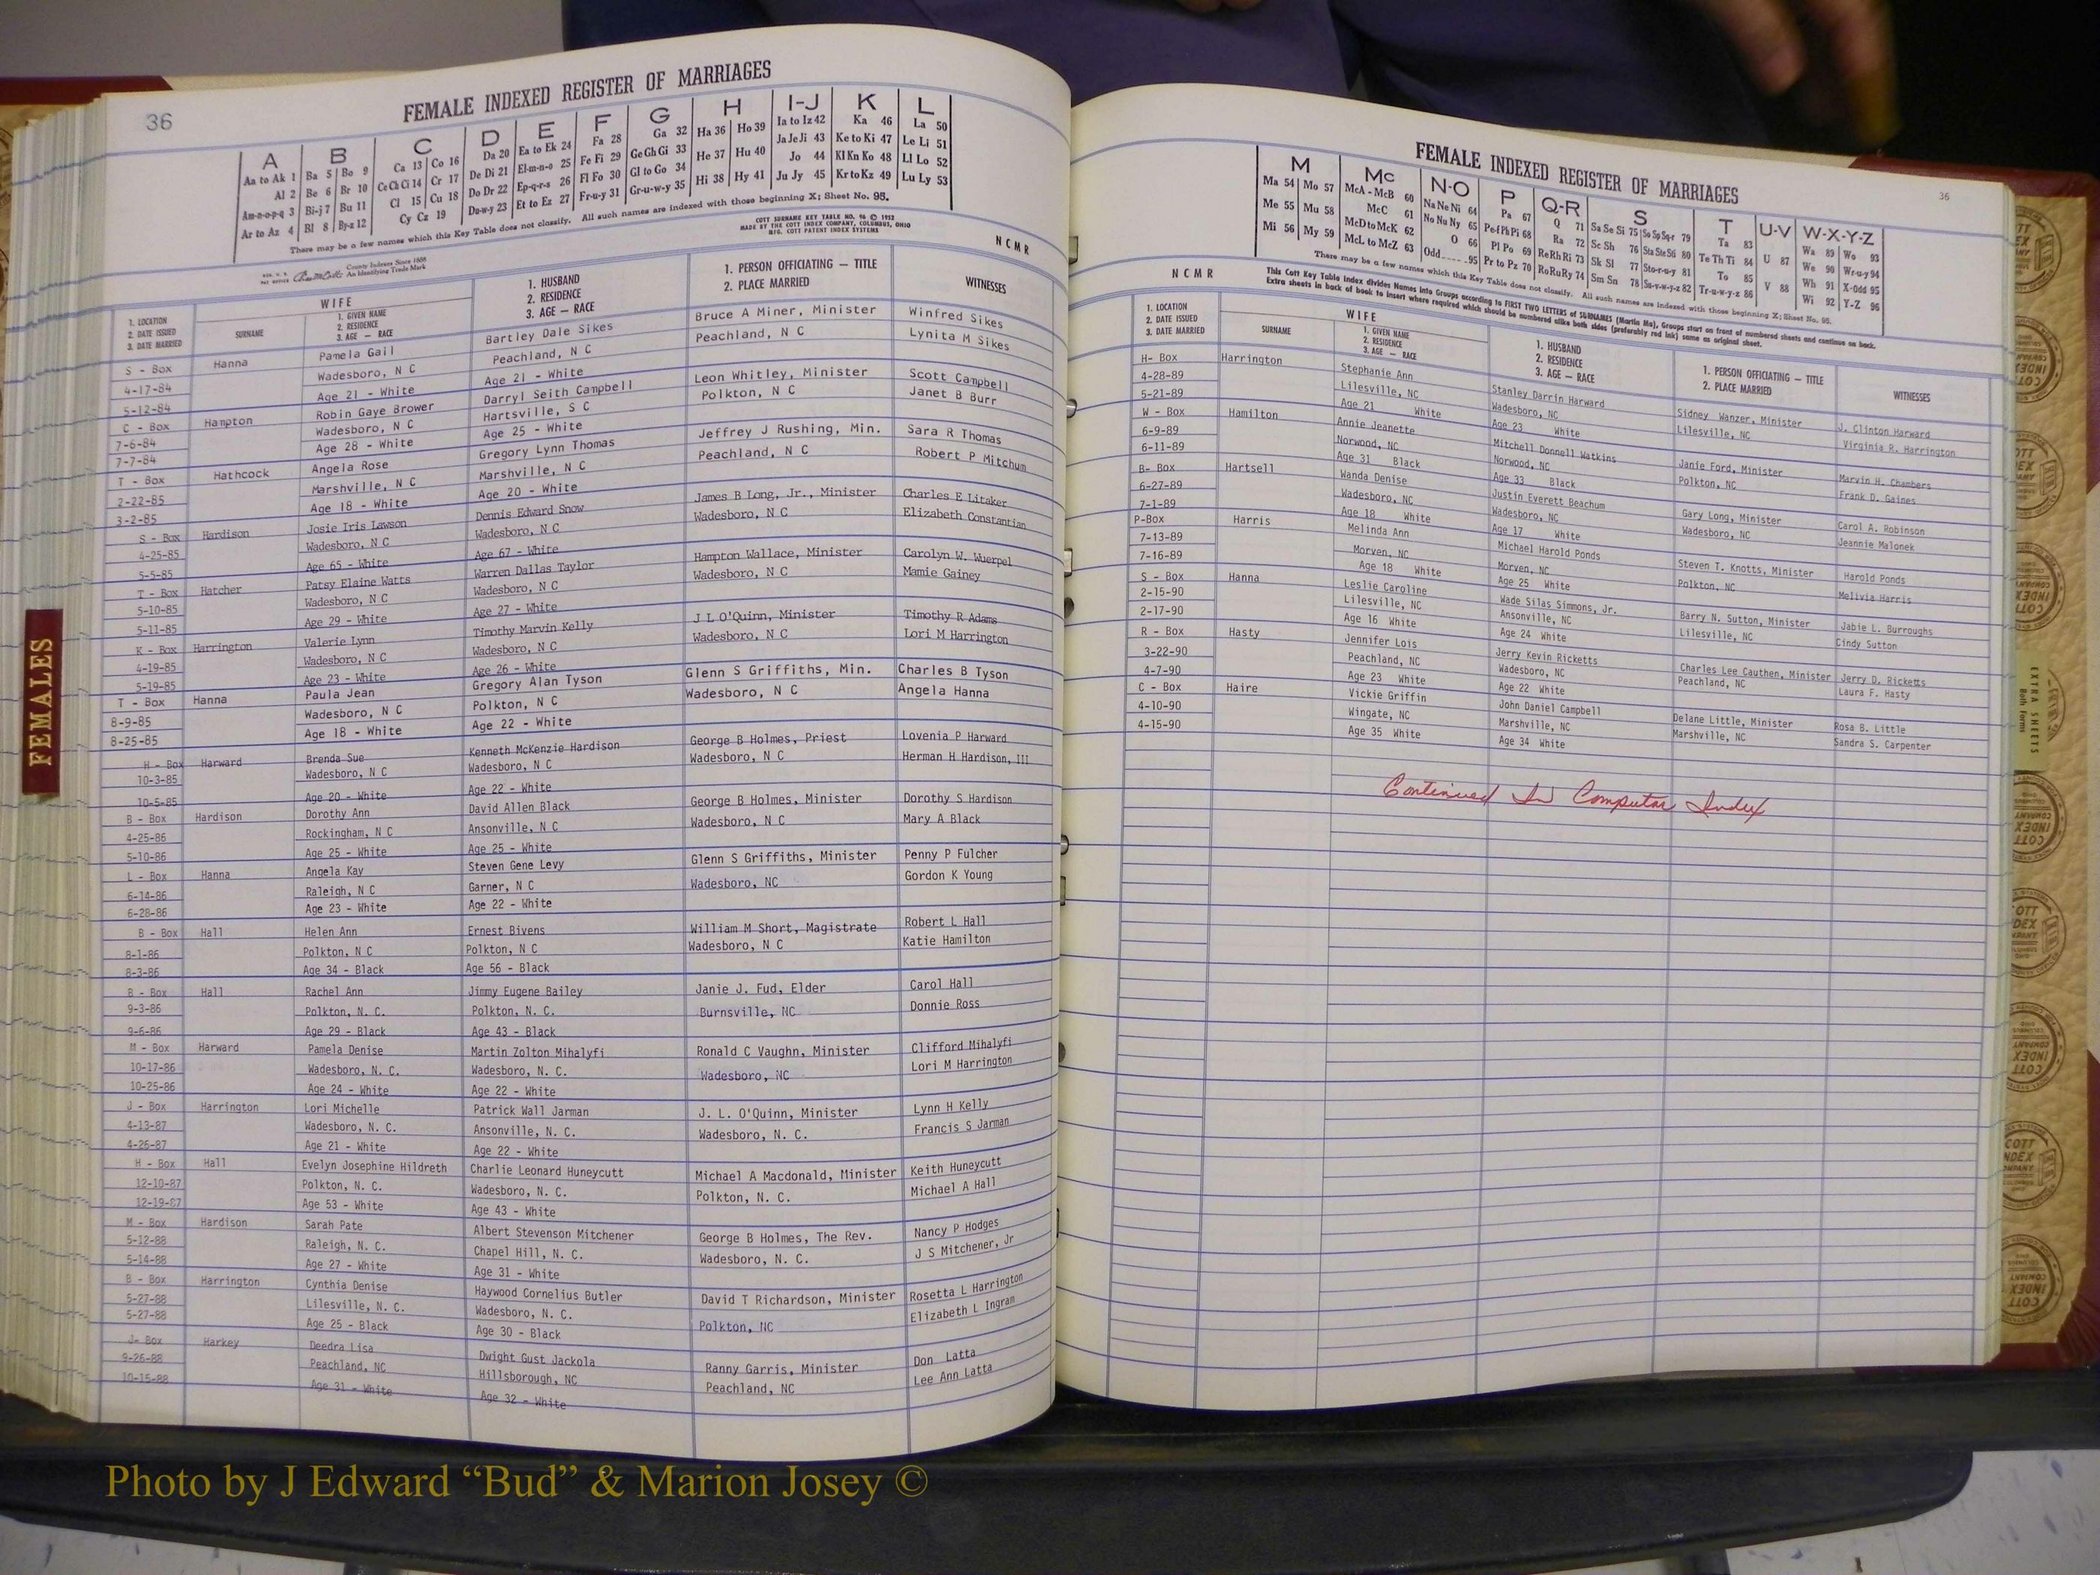 36
FEMALE INDEXED REGISTER OF MARRIAGES
A B C D E F G H I-J K L
Aa to Ak 1 Ba 5 Bo 9 Ca 13 Co 16 Da 20 Ea to Ek 24 Fa 28 Ga 32 Ha 36 Ho 39 Ia to Iz 42 Ka 46 La 50
Al 2 Be 6 Br 10 Ce Ch Ci 14 Cr 17 De Di 21 El-m-n-o 25 Fe Fi 29 Ge Gh Gi 33 He 37 Hu 40 Ja Je Ji 43 Ke to Ki 47 Le Li 51
Am-n-o-p-q 3 Bi-j 7 Bu 11 Cl 15 Cu 18 Do Dr 22 Ep-q-r-s 26 Fl Fo 30 Gl to Go 34 Hi 38 Hy 41 Jo 44 Kl Kn Ko 48 Ll Lo 52
Ar to Az 4 Bl 8 By-z 12 Cy Cz 19 Du-w-y 23 Et to Ez 27 Fr-u-y 31 Gr-u-w-y 35 Ju Jy 45 Kr to Kz 49 Lu Ly 53
There may be a few names which this Key Table does not classify. All such names are indexed with those beginning X; Sheet No. 95.
COTT SURNAME KEY TABLE NO. 96 © 1952
MADE BY THE COTT INDEX COMPANY, COLUMBUS, OHIO
MFG. COTT PATENT INDEX SYSTEMS
County Indexes Since 1888
An Identifying Trade Mark
N C M R
1. LOCATION
2. DATE ISSUED
3. DATE MARRIED
WIFE
SURNAME
1. GIVEN NAME
2. RESIDENCE
3. AGE — RACE
1. HUSBAND
2. RESIDENCE
3. AGE — RACE
1. PERSON OFFICIATING — TITLE
2. PLACE MARRIED
WITNESSES
S - Box Hanna Pamela Gail Bartley Dale Sikes Bruce A Miner, Minister Winfred Sikes
4-17-84 Wadesboro, N C Peachland, N C Peachland, N C Lynita M Sikes
5-12-84 Age 21 - White Age 21 - White
C - Box Hampton Robin Gaye Brower Darryl Seith Campbell Leon Whitley, Minister Scott Campbell
7-6-84 Wadesboro, N C Hartsville, S C Polkton, N C Janet B Burr
7-7-84 Age 28 - White Age 25 - White
T - Box Hathcock Angela Rose Gregory Lynn Thomas Jeffrey J Rushing, Min. Sara R Thomas
2-22-85 Marshville, N C Marshville, N C Peachland, N C Robert P Mitchum
3-2-85 Age 18 - White Age 20 - White
S - Box Hardison Josie Iris Lawson Dennis Edward Snow James B Long, Jr., Minister Charles E Litaker
4-25-85 Wadesboro, N C Wadesboro, N C Wadesboro, N C Elizabeth Constantian
5-5-85 Age 65 - White Age 67 - White
T - Box Hatcher Patsy Elaine Watts Warren Dallas Taylor Hampton Wallace, Minister Carolyn W. Wuerpel
5-10-85 Wadesboro, N C Wadesboro, N C Wadesboro, N C Mamie Gainey
5-11-85 Age 29 - White Age 27 - White
K - Box Harrington Valerie Lynn Timothy Marvin Kelly J L O'Quinn, Minister Timothy R Adams
4-19-85 Wadesboro, N C Wadesboro, N C Wadesboro, N C Lori M Harrington
5-19-85 Age 23 - White Age 26 - White
T - Box Hanna Paula Jean Gregory Alan Tyson Glenn S Griffiths, Min. Charles B Tyson
8-9-85 Wadesboro, N C Polkton, N C Wadesboro, N C Angela Hanna
8-25-85 Age 18 - White Age 22 - White
H - Box Harward Brenda Sue Kenneth McKenzie Hardison George B Holmes, Priest Lovenia P Harward
10-3-85 Wadesboro, N C Wadesboro, N C Wadesboro, N C Herman H Hardison, III
10-5-85 Age 20 - White Age 22 - White
B - Box Hardison Dorothy Ann David Allen Black George B Holmes, Minister Dorothy S Hardison
4-25-86 Rockingham, N C Ansonville, N C Wadesboro, N C Mary A Black
5-10-86 Age 25 - White Age 25 - White
L - Box Hanna Angela Kay Steven Gene Levy Glenn S Griffiths, Minister Penny P Fulcher
6-14-86 Raleigh, N C Garner, N C Wadesboro, NC Gordon K Young
6-28-86 Age 23 - White Age 22 - White
B - Box Hall Helen Ann Ernest Bivens William M Short, Magistrate Robert L Hall
8-1-86 Polkton, N C Polkton, N C Wadesboro, N C Katie Hamilton
8-3-86 Age 34 - Black Age 56 - Black
B - Box Hall Rachel Ann Jimmy Eugene Bailey Janie J. Fud, Elder Carol Hall
9-3-86 Polkton, N. C. Polkton, N. C. Burnsville, NC Donnie Ross
9-6-86 Age 29 - Black Age 43 - Black
M - Box Harward Pamela Denise Martin Zolton Mihalyfi Ronald C Vaughn, Minister Clifford Mihalyfi
10-17-86 Wadesboro, N. C. Wadesboro, N. C. Wadesboro, NC Lori M Harrington
10-25-86 Age 24 - White Age 22 - White
J - Box Harrington Lori Michelle Patrick Wall Jarman J. L. O'Quinn, Minister Lynn H Kelly
4-13-87 Wadesboro, N. C. Ansonville, N. C. Wadesboro, N. C. Francis S Jarman
4-26-87 Age 21 - White Age 22 - White
H - Box Hall Evelyn Josephine Hildreth Charlie Leonard Huneycutt Michael A Macdonald, Minister Keith Huneycutt
12-10-87 Polkton, N. C. Wadesboro, N. C. Polkton, N. C. Michael A Hall
12-19-87 Age 53 - White Age 43 - White
M - Box Hardison Sarah Pate Albert Stevenson Mitchener George B Holmes, The Rev. Nancy P Hodges
5-12-88 Raleigh, N. C. Chapel Hill, N. C. Wadesboro, N. C. J S Mitchener, Jr
5-14-88 Age 27 - White Age 31 - White
B - Box Harrington Cynthia Denise Haywood Cornelius Butler David T Richardson, Minister Rosetta L Harrington
5-27-88 Lilesville, N. C. Wadesboro, N. C. Polkton, NC Elizabeth L Ingram
5-27-88 Age 25 - Black Age 30 - Black
J- Box Harkey Deedra Lisa Dwight Gust Jackola Ranny Garris, Minister Don Latta
9-26-88 Peachland, NC Hillsborough, NC Peachland, NC Lee Ann Latta
10-15-88 Age 31 - White Age 32 - White
FEMALES
FEMALE INDEXED REGISTER OF MARRIAGES
36
M Mc N-O P Q-R S T U-V W-X-Y-Z
Ma 54 Mo 57 McA - McB 60 Na Ne Ni 64 Pa 67 Q 71 Sa Se Si 75 So Sp Sq-r 79 Ta 83 U 87 Wa 89 Wo 93
Me 55 Mu 58 McC 61 No Nu Ny 65 Pe-f Ph Pi 68 Ra 72 Sc Sh 76 Sta Ste Sti 80 Te Th Ti 84 V 88 We 90 Wr-u-y 94
Mi 56 My 59 McD to McK 62 O 66 Pl Po 69 Re Rh Ri 73 Sk Sl 77 Sto-r-u-y 81 To 85 Wh 91 X-Odd 95
McL to McZ 63 Odd 95 Pr to Pz 70 Ro Ru Ry 74 Sm Sn 78 Su-v-w-y-z 82 Tr-u-w-y-z 86 Wi 92 Y-Z 96
There may be a few names which this Key Table does not classify. All such names are indexed with those beginning X; Sheet No. 95.
N C M R
This Cott Key Table Index divides Names into Groups according to FIRST TWO LETTERS of SURNAMES (Martin Ma). Groups start on front of numbered sheets and continue on back.
Extra sheets in back of book to insert where required which should be numbered alike both sides (preferably red ink) same as original sheet.
1. LOCATION
2. DATE ISSUED
3. DATE MARRIED
WIFE
SURNAME
1. GIVEN NAME
2. RESIDENCE
3. AGE — RACE
1. HUSBAND
2. RESIDENCE
3. AGE — RACE
1. PERSON OFFICIATING — TITLE
2. PLACE MARRIED
WITNESSES
H- Box Harrington Stephanie Ann Stanley Darrin Harward Sidney Wanzer, Minister J. Clinton Harward
4-28-89 Lilesville, NC Wadesboro, NC Lilesville, NC Virginia R. Harrington
5-21-89 Age 21 White Age 23 White
W - Box Hamilton Annie Jeanette Mitchell Donnell Watkins Janie Ford, Minister Marvin H. Chambers
6-9-89 Norwood, NC Norwood, NC Polkton, NC Frank D. Gaines
6-11-89 Age 31 Black Age 33 Black
B- Box Hartsell Wanda Denise Justin Everett Beachum Gary Long, Minister Carol A. Robinson
6-27-89 Wadesboro, NC Wadesboro, NC Wadesboro, NC Jeannie Malonek
7-1-89 Age 18 White Age 17 White
P-Box Harris Melinda Ann Michael Harold Ponds Steven T. Knotts, Minister Harold Ponds
7-13-89 Morven, NC Morven, NC Polkton, NC Melivia Harris
7-16-89 Age 18 White Age 25 White
S - Box Hanna Leslie Caroline Wade Silas Simmons, Jr. Barry N. Sutton, Minister Jabie L. Burroughs
2-15-90 Lilesville, NC Ansonville, NC Lilesville, NC Cindy Sutton
2-17-90 Age 16 White Age 24 White
R - Box Hasty Jennifer Lois Jerry Kevin Ricketts Charles Lee Cauthen, Minister Jerry D. Ricketts
3-22-90 Peachland, NC Wadesboro, NC Peachland, NC Laura F. Hasty
4-7-90 Age 23 White Age 22 White
C - Box Haire Vickie Griffin John Daniel Campbell Delane Little, Minister Rosa B. Little
4-10-90 Wingate, NC Marshville, NC Marshville, NC Sandra S. Carpenter
4-15-90 Age 35 White Age 34 White
Continued In Computor Index
EXTRA SHEETS
Both Forms
Photo by J Edward “Bud” & Marion Josey ©